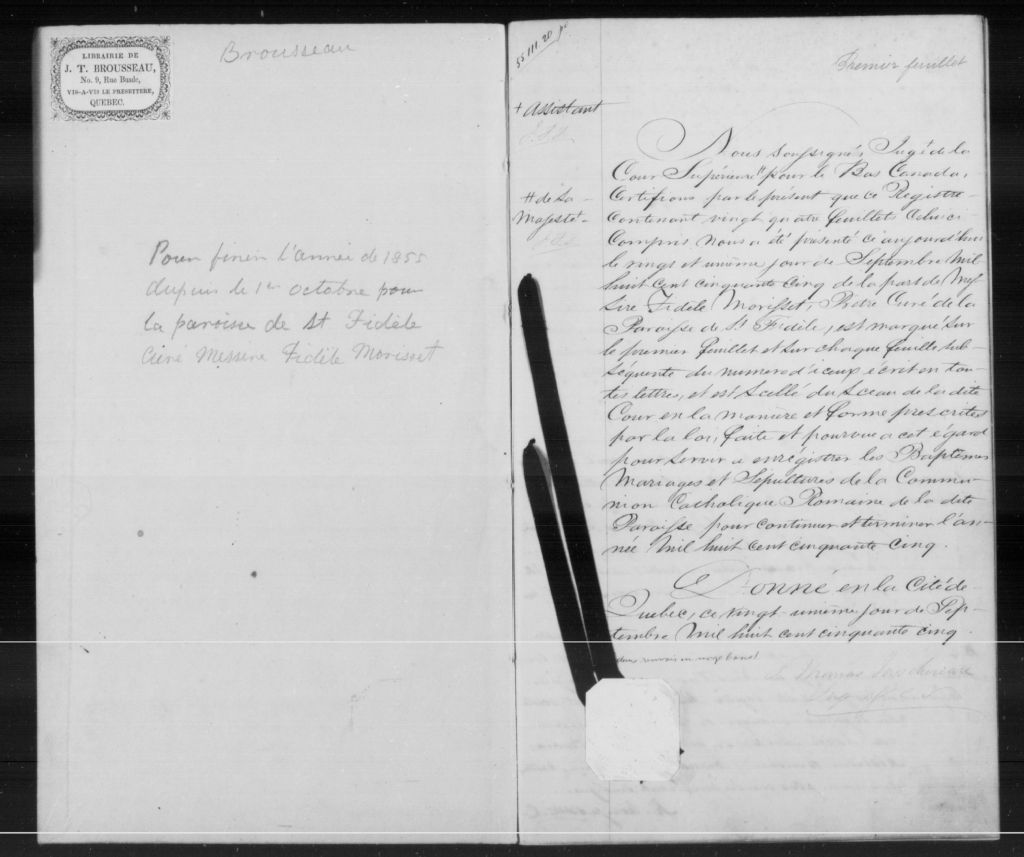 LIBRAIRIE DE
J. T. BROUSSEAU,
No. 9, Rue Buade,
VIS-A-VIS LE PRESBYTERE,
QUEBEC.
Brousseau
Pour finir l'année de 1855
depuis le 1er octobre pour
la paroisse de St Fidèle
Curé Messire Fidèle Morisset
Premier feuillet
+ Assistant
# de Sa
Majesté
Nous soussignés Juge de la
Cour Supérieure # pour le Bas Canada,
Certifions par le présent que ce Registre
Contenant vingt quatre feuillets Celui ci
Compris, Nous a été présenté ce aujourd'hui
le vingt et unième jour de Septembre Mil
huit cent cinquante cinq de la part de Mes
sire Fidèle Morisset, Prêtre Curé de la
Paroisse de St Fidèle, est marqué sur
le premier feuillet et sur chaque feuille sub-
séquente du numero d'iceux écrit en tou-
tes lettres, et est Scellé du Sceau de la dite
Cour en la manière et forme prescrites
par la loi, faite et pourvue a cet égard
pour servir a enrégistrer les Baptêmes
Mariages et Sépultures de la Commu-
nion Catholique Romaine de la dite
Paroisse pour continuer et terminer l'an-
née Mil huit cent cinquante cinq.
Donné en la Cité de
Quebec, ce vingt-unième jour de Sep-
tembre Mil huit cent cinquante cinq.
deux renvois en marge bons